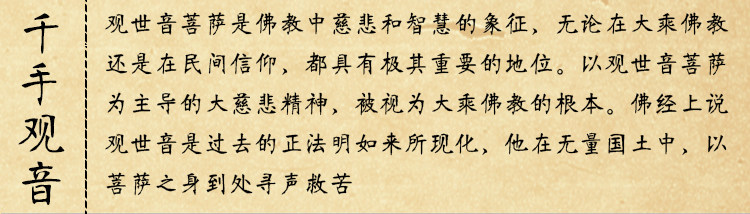 千手观音
观世音菩萨是佛教中慈悲和智慧的象征，无论在大乘佛教
还是在民间信仰，都具有极其重要的地位。以观世音菩萨
为主导的大慈悲精神，被视为大乘佛教的根本。佛经上说
观世音是过去的正法明如来所现化，他在无量国土中，以
菩萨之身到处寻声救苦